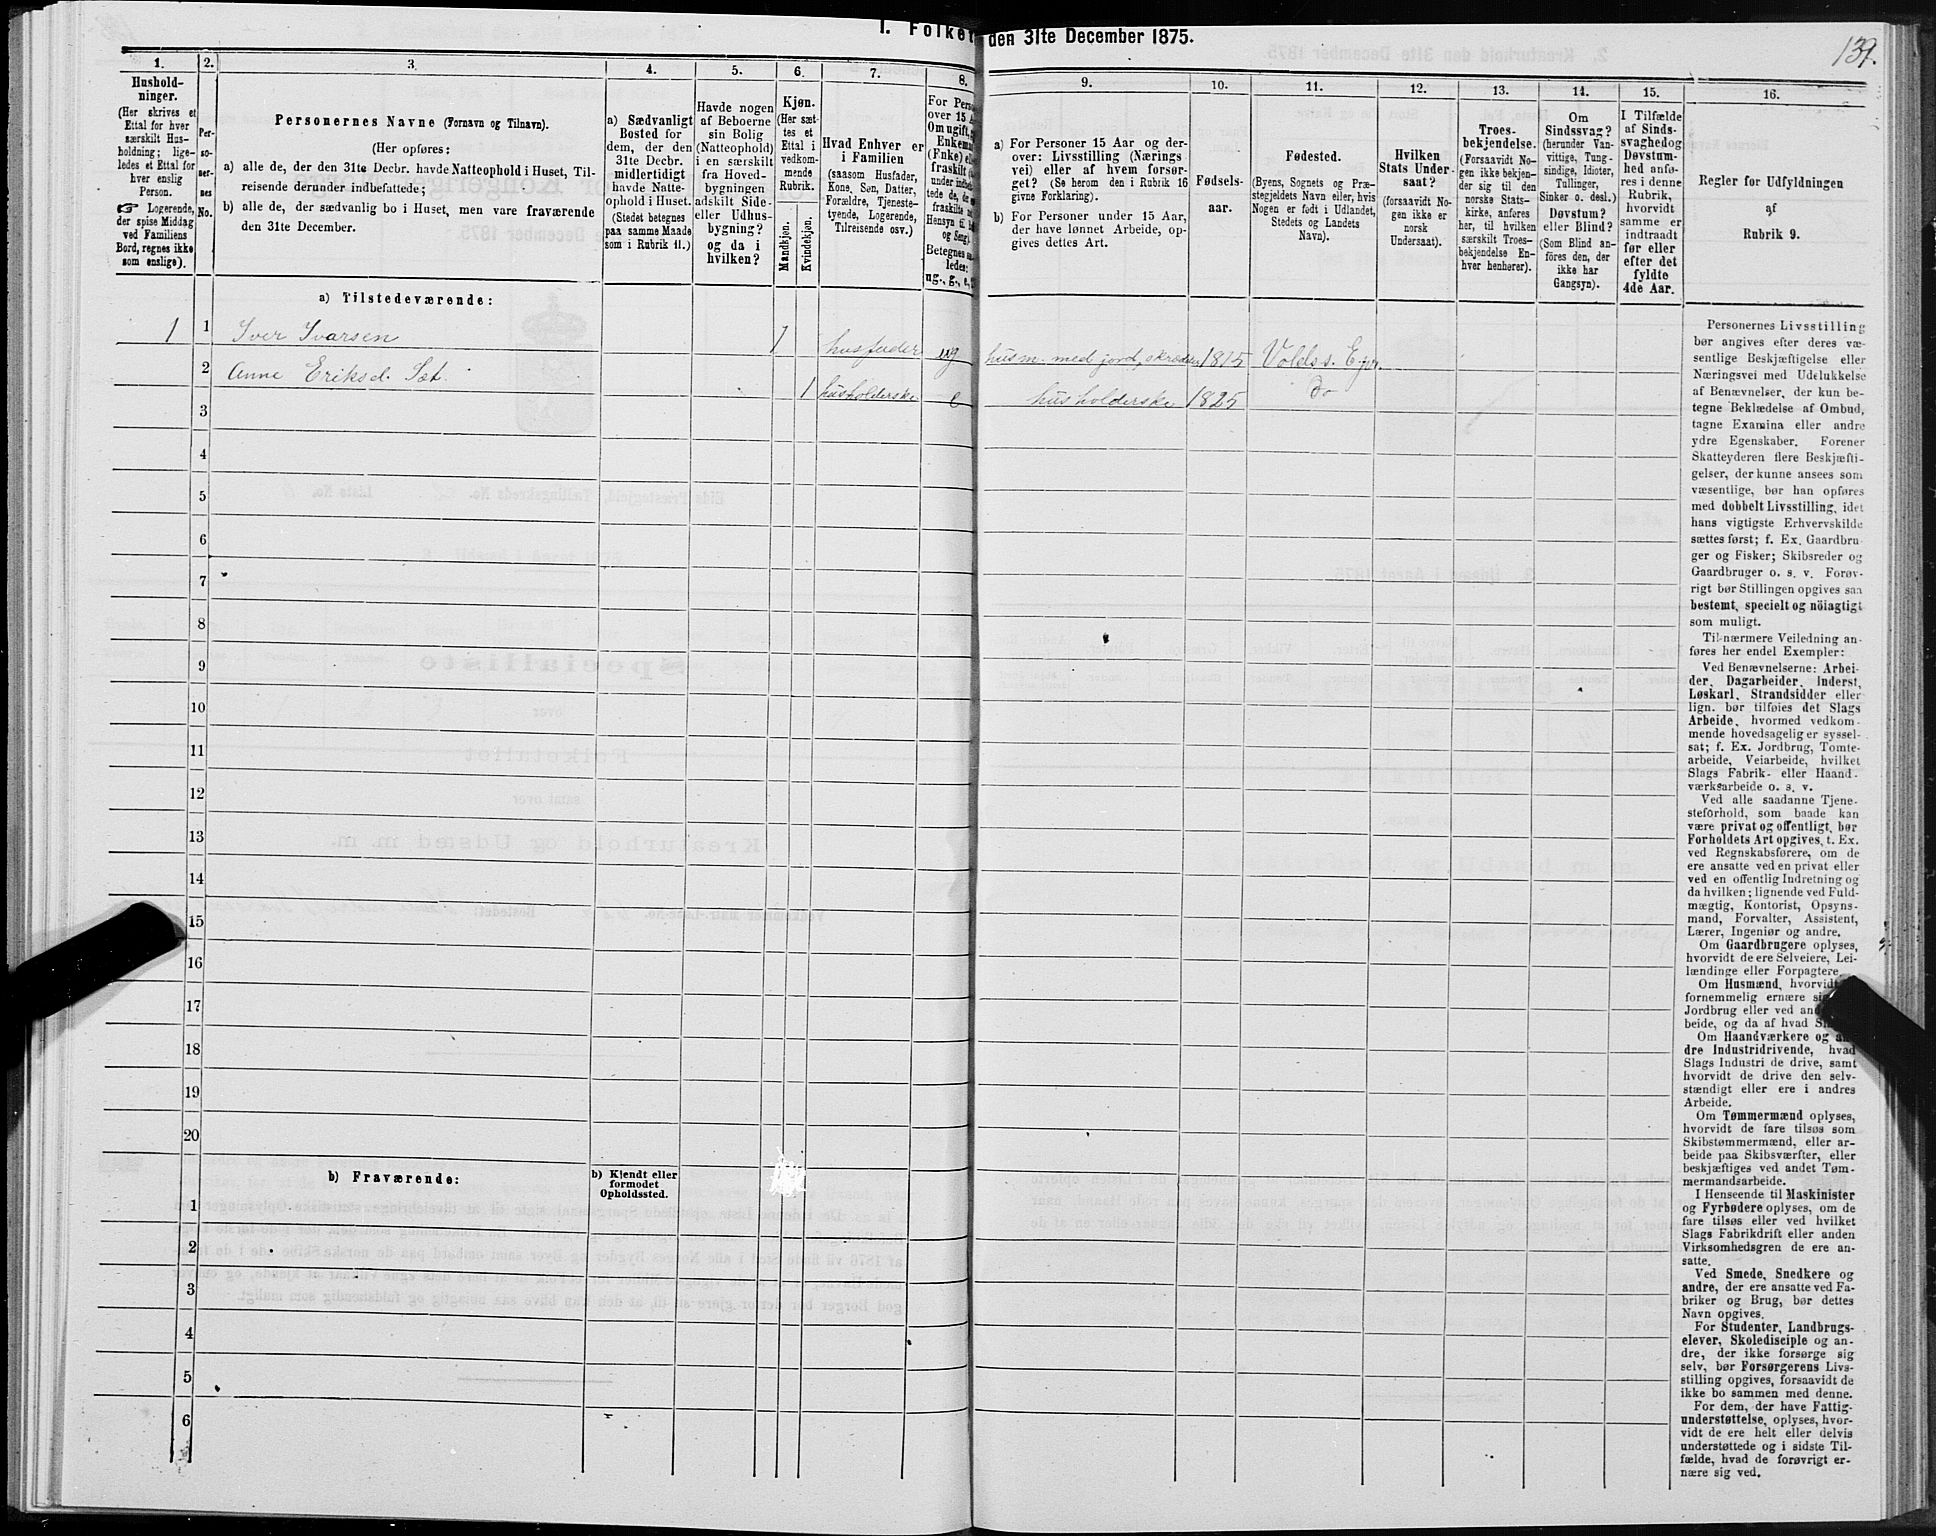 I. Folket
den 31te December 1875.
139.
1.
Hushold-
ninger.
(Her skrives et
Ettal for hver
særskilt Hus-
holdning; lige-
ledes et Ettal for
hver enslig
Person.
Logerende,
der spise Middag
ved Familiens
Bord, regnes ikke
som enslige).
2.
Per-
so-
ner-
nes
No.
3.
Personernes Navne (Fornavn og Tilnavn).
(Her opføres:
a) alle de, der den 31te Decbr. havde Natteophold i Huset, Til-
reisende derunder indbefattede;
b) alle de, der sædvanlig bo i Huset, men vare fraværende
den 31te December.
4.
a) Sædvanligt
Bosted for
dem, der den
31te Decbr.
midlertidigt
havde Natte-
ophold i Huset.
(Stedet betegnes
paa samme Maade
som i Rubrik 11.)
5.
Havde nogen
af Beboerne
sin Bolig
(Natteophold)
i en særskilt
fra Hoved-
bygningen
adskilt Side-
eller Udhus-
bygning?
og da i
hvilken?
6.
Kjøn.
(Her sæt-
tes et
Ettal i
vedkom-
mende
Rubrik.
Mandkjøn.
Kvindekjøn.
7.
Hvad Enhver er
i Familien
(saasom Husfader,
Kone, Søn, Datter,
Forældre, Tjeneste-
tyende, Logerende,
Tilreisende osv.)
8.
For Perso
over 15 A
Om ugift,
Enkem
(Enke) el
under indbe
tede de, de
fraskilte
Hensyn til
og Seng).
Betegnes sa
ledes:
ug., g., e.,
9.
a) For Personer 15 Aar og der-
over: Livsstilling (Nærings
vei) eller af hvem forsør-
get? (Se herom den i Rubrik 16
givne Forklaring).
b) For Personer under 15 Aar,
der have lønnet Arbeide, op-
gives dettes Art.
10.
Fødsels-
aar.
11.
Fødested.
(Byens, Sognets og Præ-
stegjeldets Navn eller, hvis
Nogen er født i Udlandet,
Stedets og Landets
Navn).
12.
Hvilken
Stats Under-
saat?
(forsaavidt No-
gen ikke er
norsk
Undersaat).
13.
Troes-
bekjendelse.
(Forsaavidt No-
gen ikke bekjen-
der sig til den
norske Stats-
kirke, anføres
her, til hvilken
særskilt Troes-
bekjendelse En-
hver henhører).
14.
Om
Sindssvag?
(herunder Van-
vittige, Tung-
sindige, Idioter,
Tullinger,
Sinker o. desl.)
Døvstum?
eller Blind?
(Som Blind an-
föres den, der
ikke har
Gangsyn).
15.
I Tilfælde
af Sinds-
svaghed og
Døvstum-
hed anfø-
res i denne
Rubrik,
hvorvidt
samme er
indtraadt
før eller
efter det
fyldte
4de Aar.
16.
Regler for Udfyldningen
af
Rubrik 9.
a) Tilstedeværende:
1 1 Iver Ivarsen 1 husfader ug husm. med jord, skræder 1815 Volds s. E.pr.
2 Anne Eriksd. Sæt. 1 husholderske e husholderske 1825 do
3
4
5
6
7
8
9
10
11
12
13
14
15
16
17
18
19
20
b) Fraværende:
b) Kjendt eller
formodet
Opholdssted.
1
2
3
4
5
6
Personernes Livsstilling
bør angives efter deres væ-
sentlige Beskjæftigelse eller
Næringsvei med Udelukkelse
af Benævnelser, der kun be-
tegne Beklædelse af Ombud,
tagne Examina eller andre
ydre Egenskaber. Forener
Skatteyderen flere Beskjæfti-
gelser, der kunne ansees som
væsentlige, bør han opføres
med dobbelt Livsstilling, idet
hans vigtigste Erhvervskilde
sættes først; f. Ex. Gaardbru-
ger og Fisker; Skibsreder og
Gaardbruger o. s. v. Forøv-
rigt bør Stillingen opgives saa
bestemt, specielt og nöiagtigt
som muligt.
Til nærmere Veiledning an-
føres her endel Exempler:
Ved Benævnelserne: Arbei-
der, Dagarbeider, Inderst,
Løskarl, Strandsidder eller
lign. bør tilføies det Slags
Arbeide, hvormed vedkom-
mende hovedsagelig er syssel-
sat; f. Ex. Jordbrug, Tomte-
arbeide, Veiarbeide, hvilket
Slags Fabrik- eller Haand-
værksarbeide o. s. v.
Ved alle saadanne Tjene-
steforhold, som baade kan
være privat og offentligt, bør
Forholdets Art opgives, t. Ex.
ved Regnskabsførere, om de
ere ansatte ved en privat eller
ved en offentlig Indretning og
da hvilken; lignende ved Fuld-
mægtig, Kontorist, Opsyns-
mand, Forvalter, Assistent,
Lærer, Ingeniør og andre.
Om Gaardbrugere oplyses,
hvorvidt de ere Selveiere, Lei-
lændinge eller Forpagtere.
Om Husmænd, hvorvidt
fornemmelig ernære si
Jordbrug eller ved an
beide, og da af hvad S
Om Haandværkere og an
dre Industridrivende, hvad
Slags Industri de drive, samt
hvorvidt de drive den selv-
stændigt eller ere i andres
Arbeide.
Om Tømmermænd oplyses,
hvorvidt de fare tilsøs som
Skibstømmermænd, eller ar-
beide paa Skibsværfter, eller
beskjæftiges ved andet Tøm-
mermandsarbeide.
I Henseende til Maskinister
og Fyrbødere oplyses, om de
fare tilsøs eller ved hvilket
Slags Fabrikdrift eller anden
Virksomhedsgren de ere an-
satte.
Ved Smede, Snedkere og
andre, der ere ansatte ved Fa-
briker og Brug, bør dettes
Navn opgives.
For Studenter, Landbrugs-
elever, Skoledisciple og an-
dre, der ikke forsørge sig
selv, bør Forsørgerens Livs-
stilling opgives, forsaavidt de
ikke bo sammen med denne.
For dem, der have Fattig-
understøttelse, oplyses, hvor-
vidt de ere helt eller delvis
understøttede og i sidste Til-
fælde, hvad de forøvrigt er-
nære sig ved.